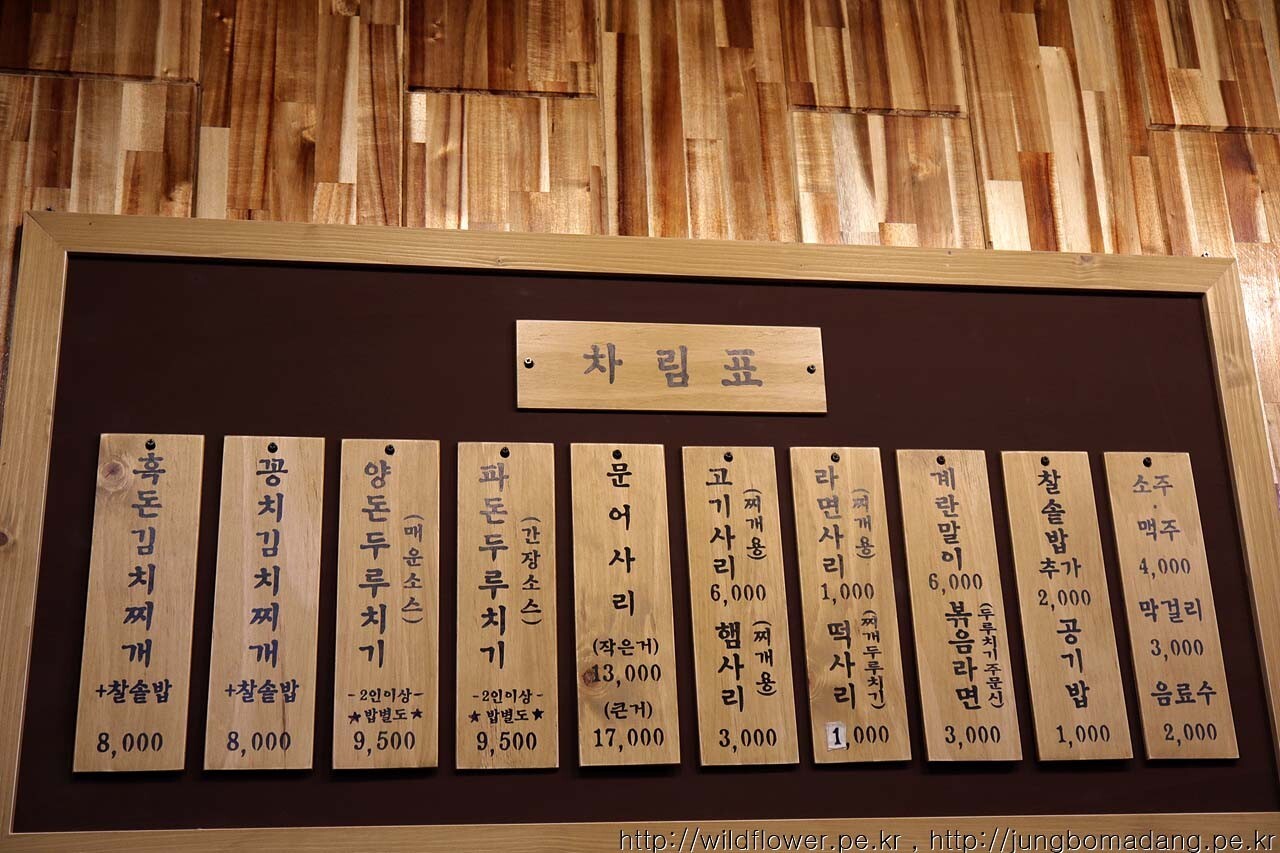 차림표
흑돈김치찌개
+찰솥밥
8,000
꽁치김치찌개
+찰솥밥
8,000
양돈두루치기
(매운소스)
-2인이상-
★밥별도★
9,500
파돈두루치기
(간장소스)
-2인이상-
★밥별도★
9,500
문어사리
(작은거)
13,000
(큰거)
17,000
고기사리
(찌개용)
6,000
햄사리
(찌개용)
3,000
라면사리
(찌개용)
1,000
떡사리
(찌개두루치기)
1,000
계란말이
6,000
볶음라면
(두루치기주문시)
3,000
찰솥밥
추가
2,000
공기밥
1,000
소주
·
맥주
4,000
막걸리
3,000
음료수
2,000
http://wildflower.pe.kr , http://jungbomadang.pe.kr